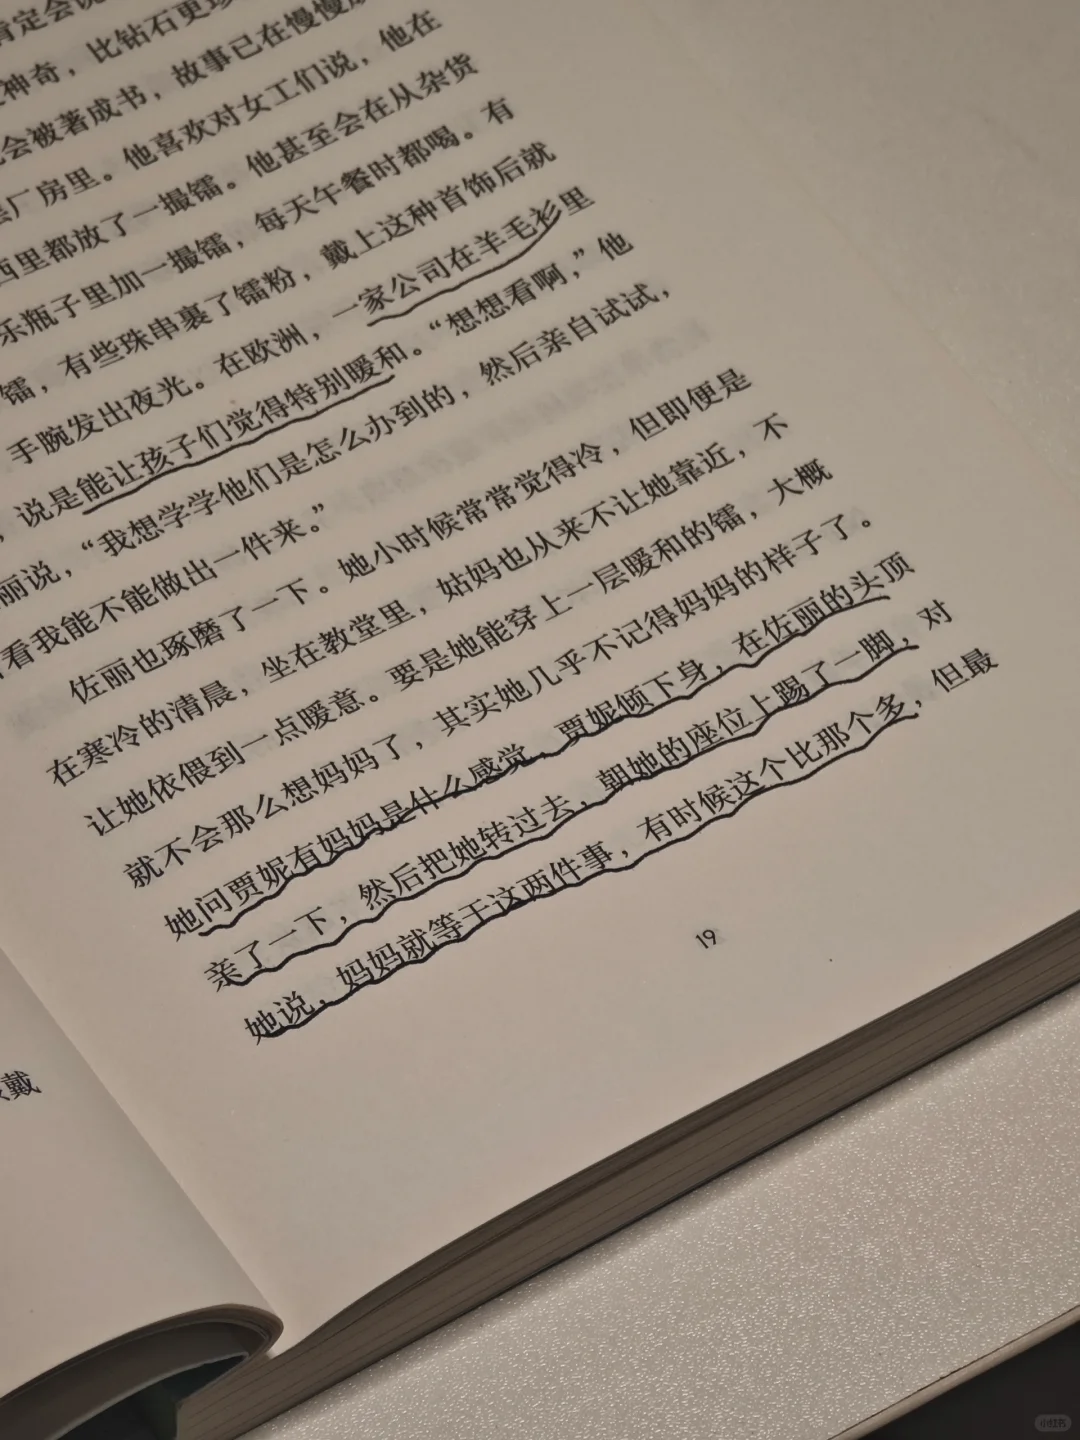 肯定会说
神奇，比钻石更
会被著成书，故事已在慢慢
厂房里。他喜欢对女工们说，他在
西里都放了一撮镭。他甚至会在从杂货
乐瓶子里加一撮镭，每天午餐时都喝。有
镭，有些珠串裹了镭粉，戴上这种首饰后就
手腕发出夜光。在欧洲，一家公司在羊毛衫里
，说是能让孩子们觉得特别暖和。“想想看啊，”他
丽说，“我想学学他们是怎么办到的，然后亲自试试，
看我能不能做出一件来。”
佐丽也琢磨了一下。她小时候常常觉得冷，但即便是
在寒冷的清晨，坐在教堂里，姑妈也从来不让她靠近，不
让她依偎到一点暖意。要是她能穿上一层暖和的镭，大概
就不会那么想妈妈了，其实她几乎不记得妈妈的样子了。
她问贾妮有妈妈是什么感觉，贾妮倾下身，在佐丽的头顶
亲了一下，然后把她转过去，朝她的座位上踢了一脚，对
她说，妈妈就等于这两件事，有时候这个比那个多，但最
19
戴
小红书